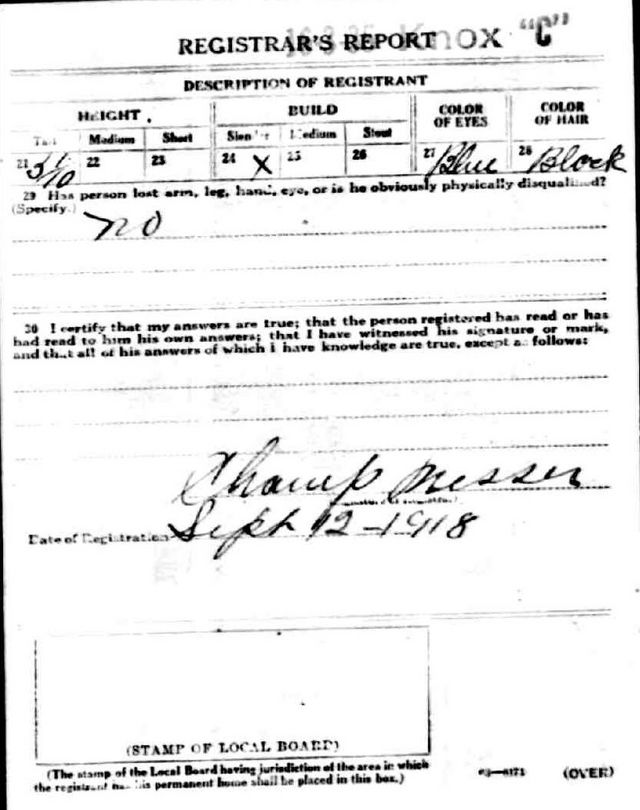 Knox "C"
REGISTRAR'S REPORT
DESCRIPTION OF REGISTRANT
HEIGHT BUILD COLOR OF EYES COLOR OF HAIR
Tall Medium Short Slender Medium Stout
21 22 23 24 X 25 26 27 Blue 28 Black
29 Has person lost arm, leg, hand, eye, or is he obviously physically disqualified?
(Specify.) no
30 I certify that my answers are true; that the person registered has read or has
had read to him his own answers; that I have witnessed his signature or mark,
and that all of his answers of which I have knowledge are true, except as follows:
Champ Messer
Date of Registration Sept 12-1918
(STAMP OF LOCAL BOARD)
(The stamp of the Local Board having jurisdiction of the area in which
the registrant has his permanent home shall be placed in this box.)
(OVER)